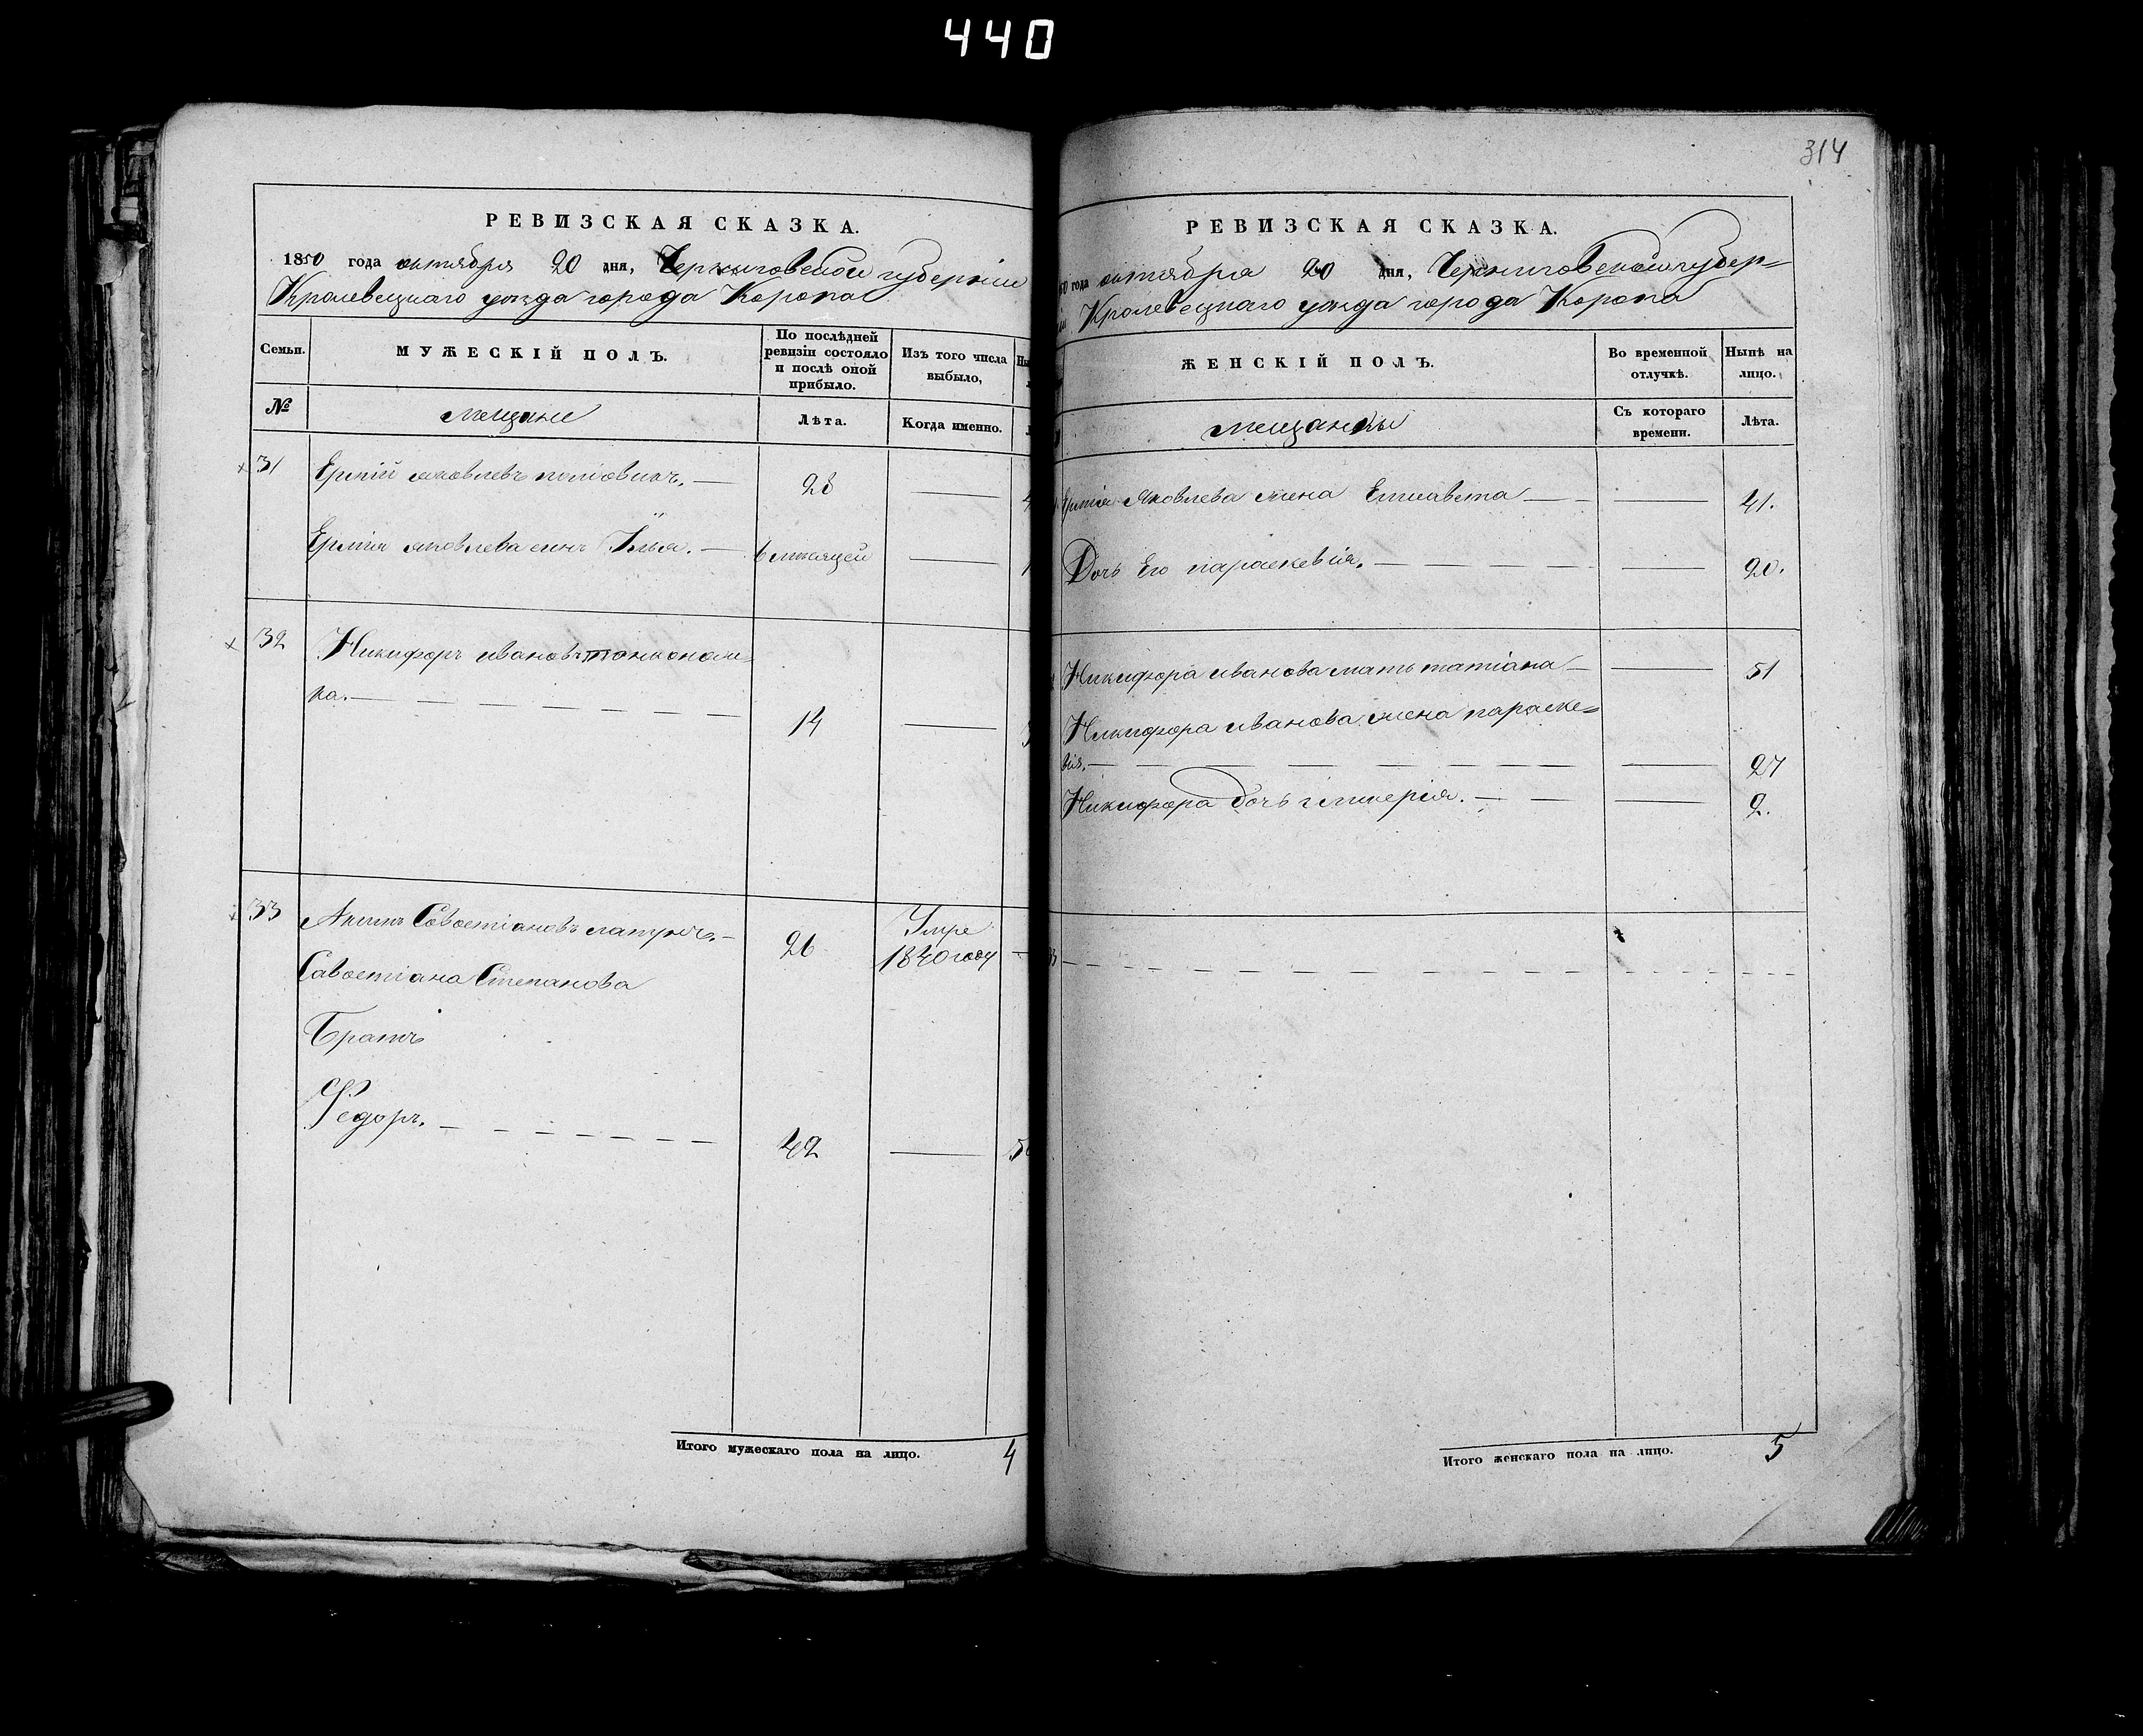 440
314
РЕВИЗСКАЯ СКАЗКА.
1850 года октября 20 дня, Черниговской губерніи
Кролевецкаго уезда города Коропа
Семьи.
МУЖЕСКІЙ ПОЛЪ.
По послѣдней ревизіи состояло и послѣ оной прибыло.
Изъ того числа выбыло,
№
мещане
Лѣта.
Когда именно.
31 Ермій яковлевъ 28
Ермія яковлева сынъ Илья. 6 месяцей
32 Никифоръ ивановъ
ка. 14
33 Акимъ Савостіановъ 26 Умре
1840 году
Савостіана Степанова
Братъ
Федоръ. 42
Итого мужескаго пола на лицо. 4
РЕВИЗСКАЯ СКАЗКА.
года октября 20 дня, Черниговской губер=
Кролевецкаго уезда города Коропа
ЖЕНСКІЙ ПОЛЪ.
Во временной отлучкѣ.
Нынѣ на лицо.
мещанки
Съ котораго времени.
Лѣта.
Ермія Яковлева жена Елисавета 41.
Дочь Его параскевія. 20.
Никифора иванова мать татіана 51
Никифора иванова жена параске=
вія. 27
Никифора дочь гликерія. 2.
Итого женскаго пола на лицо. 5